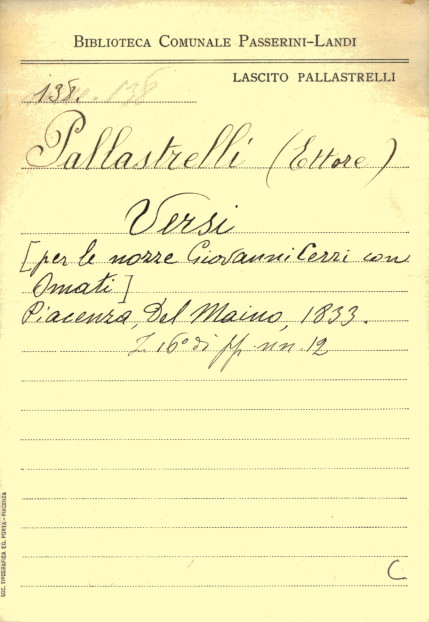 BIBLIOTECA COMUNALE PASSERINI-LANDI
LASCITO PALLASTRELLI
138. 138
Pallastrelli (Ettore)
Versi
[per le nozze Giovanni Cerri con
Omati]
Piacenza, Del Maino, 1833.
In 16° di pp. nn. 12
C
SOC. TIPOGRAFICA ED. PORTA - PIACENZA